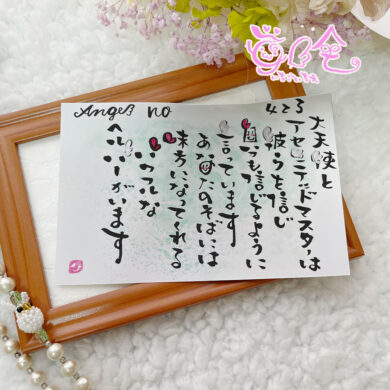 Angel's no 423
大天使と
アセンデッドマスターは
彼らを信じ
を信じるように
言っています
あなたのそばには
味方になってくれる
パワフルな
ヘルパーがいます